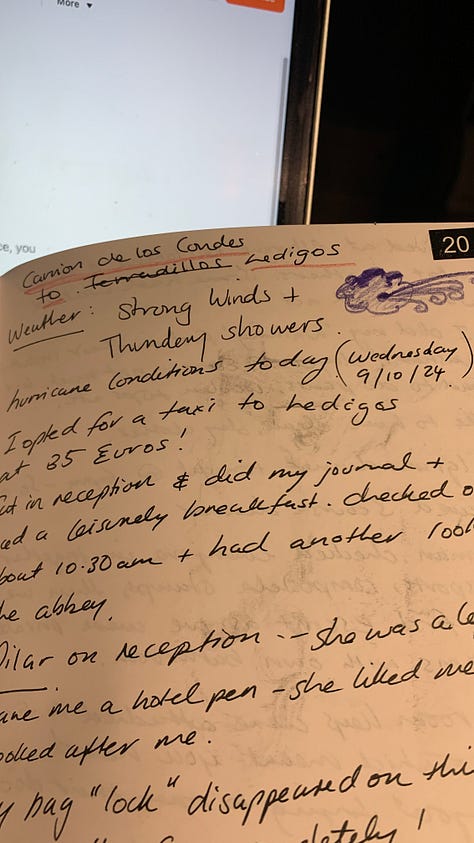 More ▼
ce, you
20
Carrion de los Condes
to Terradillos Ledigos
Weather: Strong Winds +
Thundery showers.
hurricane conditions today (Wednesday
9/10/24)
I opted for a taxi to Ledigos
at 35 Euros!
in reception & did my journal +
a leisurely breakfast. Checked o
bout 10.30am + had another look
he abbey.
Pilar on reception -- she was a
ave me a hotel pen - she liked me
ooked after me.
y bag "lock" disappeared on thi